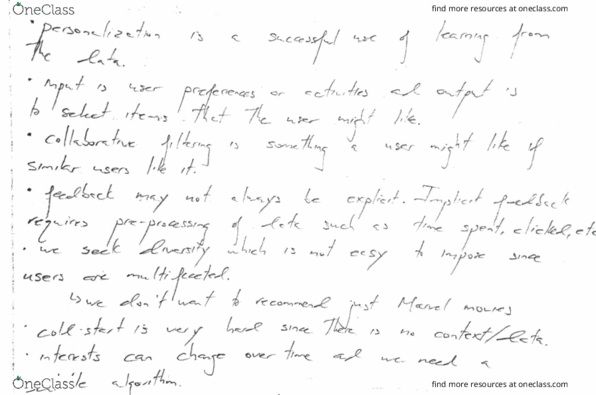 OneClass
find more resources at oneclass.com
• personalization is a successful use of learning from
the data.
• input is user preferences or activities ad output is
to select items that the user might like.
• collaborative filtering is something a user might like if
similar users like it.
• feedback may not always be explicit. Implicit feedback
requires pre-processing of data such as time spent, clicked, etc
• we seek diversity which is not easy to impose since
users are multifaceted.
↳ we don't want to recommend just Marvel movies
• cold-start is very hard since there is no context/data.
• interests can change over time ad we need a
algorithm.
OneClass
find more resources at oneclass.com